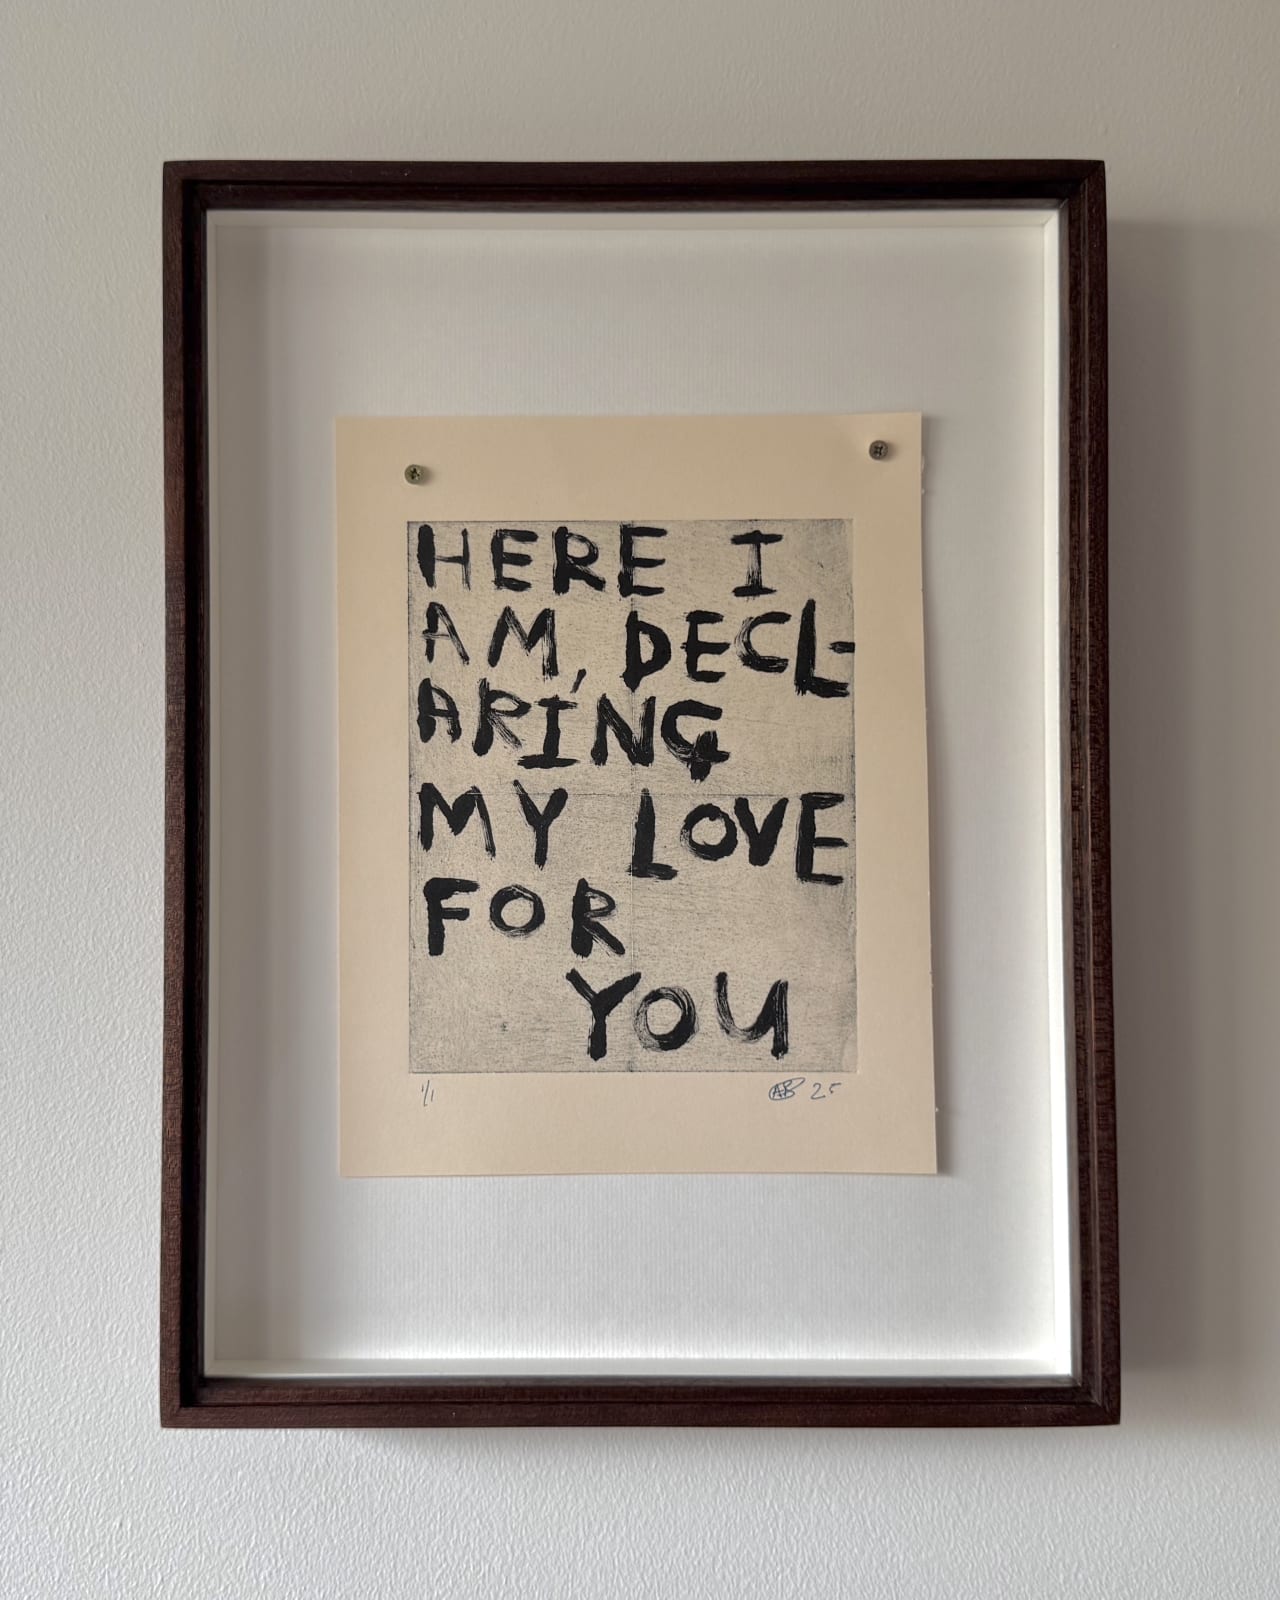 HERE I
AM, DECL-
ARING
MY LOVE
FOR
YOU
1/1
AB 25